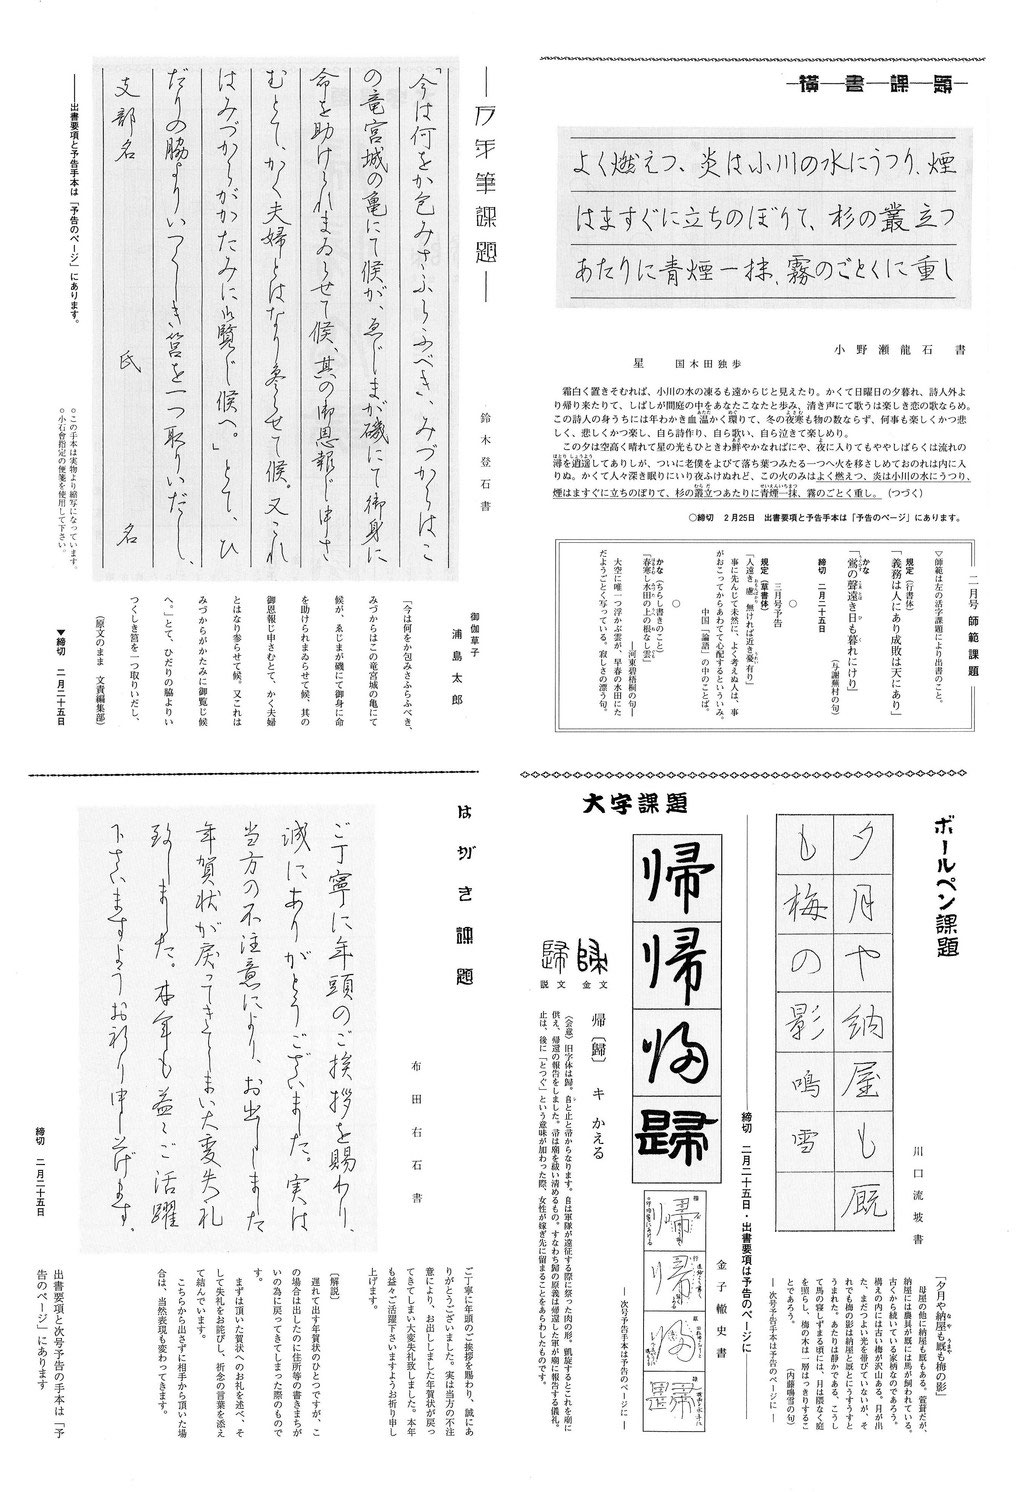 横書課題
よく燃えつ、炎は小川の水にうつり、煙
はますぐに立ちのぼりて、杉の叢立つ
あたりに青煙一抹、霧のごとくに重し
小野瀬龍石 書
星 国木田独歩
霜白く置きそむれば、小川の水の凍るも遠からじと見えたり。かくて日曜日の夕暮れ、詩人外よ
り帰り来たりて、しばしが間庭の中をあなたこなたと歩み、清き声にて歌うは楽しき恋の歌ならめ。
この詩人の身うちには年わかき血温かく環りて、冬の夜寒も物の数ならず、何事も楽しくかつ悲
しく、悲しくかつ楽し、自ら詩作り、自ら歌い、自ら泣きて楽しめり。
この夕は空高く晴れて星の光もひときわ鮮やかなればにや、夜に入りてもややしばらくは流れの
潯を逍遥してありしが、ついに老僕をよびて落ち葉つみたる一つへ火を移さしめておのれは内に入
りぬ。かくて人々深き眠りにいり夜ふけぬれど、この火のみはよく燃えつ、炎は小川の水にうつり、
煙はますぐに立ちのぼりて、杉の叢立つあたりに青煙一抹、霧のごとく重し。（つづく）
○締切 2月25日 出書要項と予告手本は「予告のページ」にあります。
二月号師範課題
▽師範は左の活字課題により出書のこと。
規定（行書体）
「義務は人にあり成敗は天にあり」
かな
「鶯の聲遠き日も暮れにけり」
（与謝蕪村の句）
締切 二月二十五日
○
三月号予告
規定（草書体）
「人遠き慮 無ければ近き憂有り」
事に先んじて未然に、よく考えぬ人は、事
がおこってからあわてて心配するというい​み。
中国「論語」の中のことば。
○
かな（ちらし書きのこと）
「春寒し水田の上の根なし雲」
―河東碧梧桐の句―
大空に唯一つ浮かぶ雲が、早春の水田にた
だようごとく写っている。寂しさの漂う句。
―万年筆課題―
鈴木登石書
「今は何をか包みさふらふべき、みづからはこ
の竜宮城の亀にて候が、ゑじまが磯にて御身に
命を助けられまゐらせて候、其の御恩報じ申さ
むとて、かく夫婦とはなり参らせて候。又これ
はみづからがかたみに御覧じ候へ。」とて、ひ
だりの脇よりいつくしき筥を一つ取りいだし、
支部名 氏 名
○この手本は実物より縮写になっています。
○小石會指定の便箋を使用して下さい。
――出書要項と予告手本は「予告のページ」にあります。
御伽草子
浦島太郎
「今は何をか包みさふらふべき、
みづからはこの竜宮城の亀にて
候が、ゑじまが磯にて御身に命
を助けられまゐらせて候、其の
御恩報じ申さむとて、かく夫婦
とはなり参らせて候。又これは
みづからがかたみに御覧じ候
へ。」とて、ひだりの脇よりい
つくしき筥を一つ取りいだし、
（原文のまま 文責編集部）
▼締切 二月二十五日
ボールペン課題
夕月や納屋も厩
も梅の影 鳴雪
川口流坡書
「夕月や納屋も厩も梅の影」
母屋の他に納屋も厩もある。萱葺だが、
納屋には農具が厩には馬が飼われている。
古くから続いている家柄なのであろう。
構えの内には古い梅が沢山ある。月が出
た。まだつよい光を帯びていないが、そ
れでも梅の影は納屋と厩とにうすうすと
うまれた。あたりは静かである。こうし
て馬の寝しずまる頃には、月は隈なく庭
を照らし、梅の木は一層はっきりするこ
とであろう。
（内藤鳴雪の句）
―次号予告手本は予告のページに―
締切 二月二十五日・出書要項は予告のページに
大字課題
帰
帰
帰
歸
金子轍史書
金文
説文
帰〔歸〕 キ かえる
〈会意〉旧字体は歸。𠂤と止と帚からなります。𠂤は軍隊が遠征する際に祭った肉の形。凱旋するとこれを廟に
供え、帰還の報告をしました。帚は廟を祓い清めるもの。すなわち歸の原義は帰還した軍が廟に報告する儀礼。
止は、後に「とつぐ」という意味が加わった際、女性が嫁ぎ先に留まることをあらわしたものです。
―次号予告手本は予告のページに―
はがき課題
布田右石書
ご丁寧に年頭のご挨拶を賜わり、
誠にありがとうございました。実は
当方の不注意により、お出ししました
年賀状が戻ってきてしまい大変失礼
致しました。本年も益々ご活躍
下さいますようお祈り申し上げます。
締切 二月二十五日
ご丁寧に年頭のご挨拶を賜わり、誠にあ
りがとうございました。実は当方の不注
意により、お出ししました年賀状が戻っ
てきてしまい大変失礼致しました。本年
も益々ご活躍下さいますようお祈り申し
上げます。
〔解説〕
遅れて出す年賀状のひとつですが、こ
の場合は出したのに住所等の書きまちが
いの為に戻ってきてしまった際のもので
す。
まずは頂いた賀状へのお礼を述べ、そ
して失礼をお詫びし、祈念の言葉を添え
て結んでいます。
こちらから出さずに相手から頂いた場
合は、当然表現も変わってきます。
出書要項と次号予告の手本は「予
告のページ」にあります